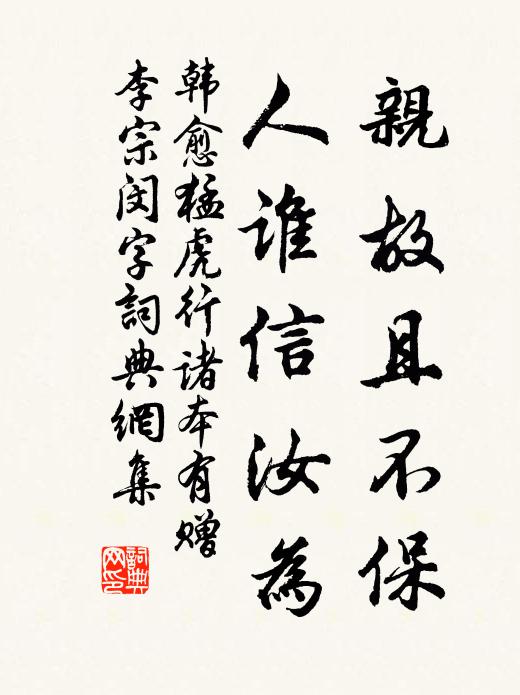 親故且不保
人谁信汝為
韩愈猛虎行诸本有赠
李宗闵字詞典網集
詞典
网印